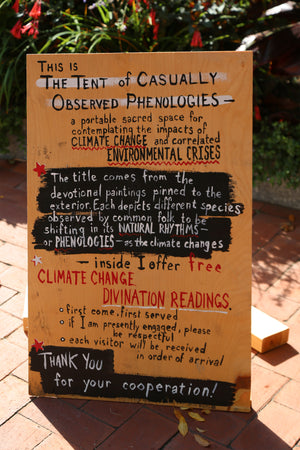 THIS IS
THE TENT OF CASUALLY
OBSERVED PHENOLOGIES —
a portable sacred space for
contemplating the impacts of
CLIMATE CHANGE and correlated
ENVIRONMENTAL CRISES
The title comes from the
devotional paintings pinned to the
exterior. Each depicts different species
observed by common folk to be
shifting in its NATURAL RHYTHMS —
or PHENOLOGIES — as the climate changes
— inside I offer free
CLIMATE CHANGE
DIVINATION READINGS.
first come, first served
if I am presently engaged, please
be respectful
each visitor will be received
in order of arrival
THANK YOU
for your cooperation!